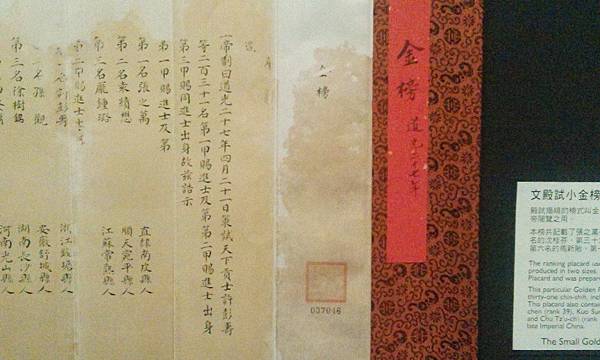 金榜 道光二十七年
一榜
帝制曰道光二十七年四月二十一日策試天下貢士許彭壽
等二百三十一名第一甲賜進士及第第二甲賜進士出身
第三甲賜同進士出身故茲誥示
第一甲賜進士及第
第一名張之萬 直隸南皮縣人
第二名袁績懋 順天宛平縣人
第三名龐鍾璐 江蘇常熟縣人
第二甲賜進士出
名許彭壽 浙江錢塘縣人
名孫觀 安徽舒城縣人
第三名徐樹銘 湖南長沙縣人
河南光山縣人
037046
文殿試小金榜
帝閱覽之用。
本榜共記載了張之萬
第六名的馬新貽，第一
The ranking placard use
produced in two sizes
Placard and was prepare
This particular Golden P
thirty-one chin-shih, incl
This placard also contain
chen (rank 39), Kuo Sun
and Chu Tz'u-ch'i (rank
late Imperial China.
The Small Gold